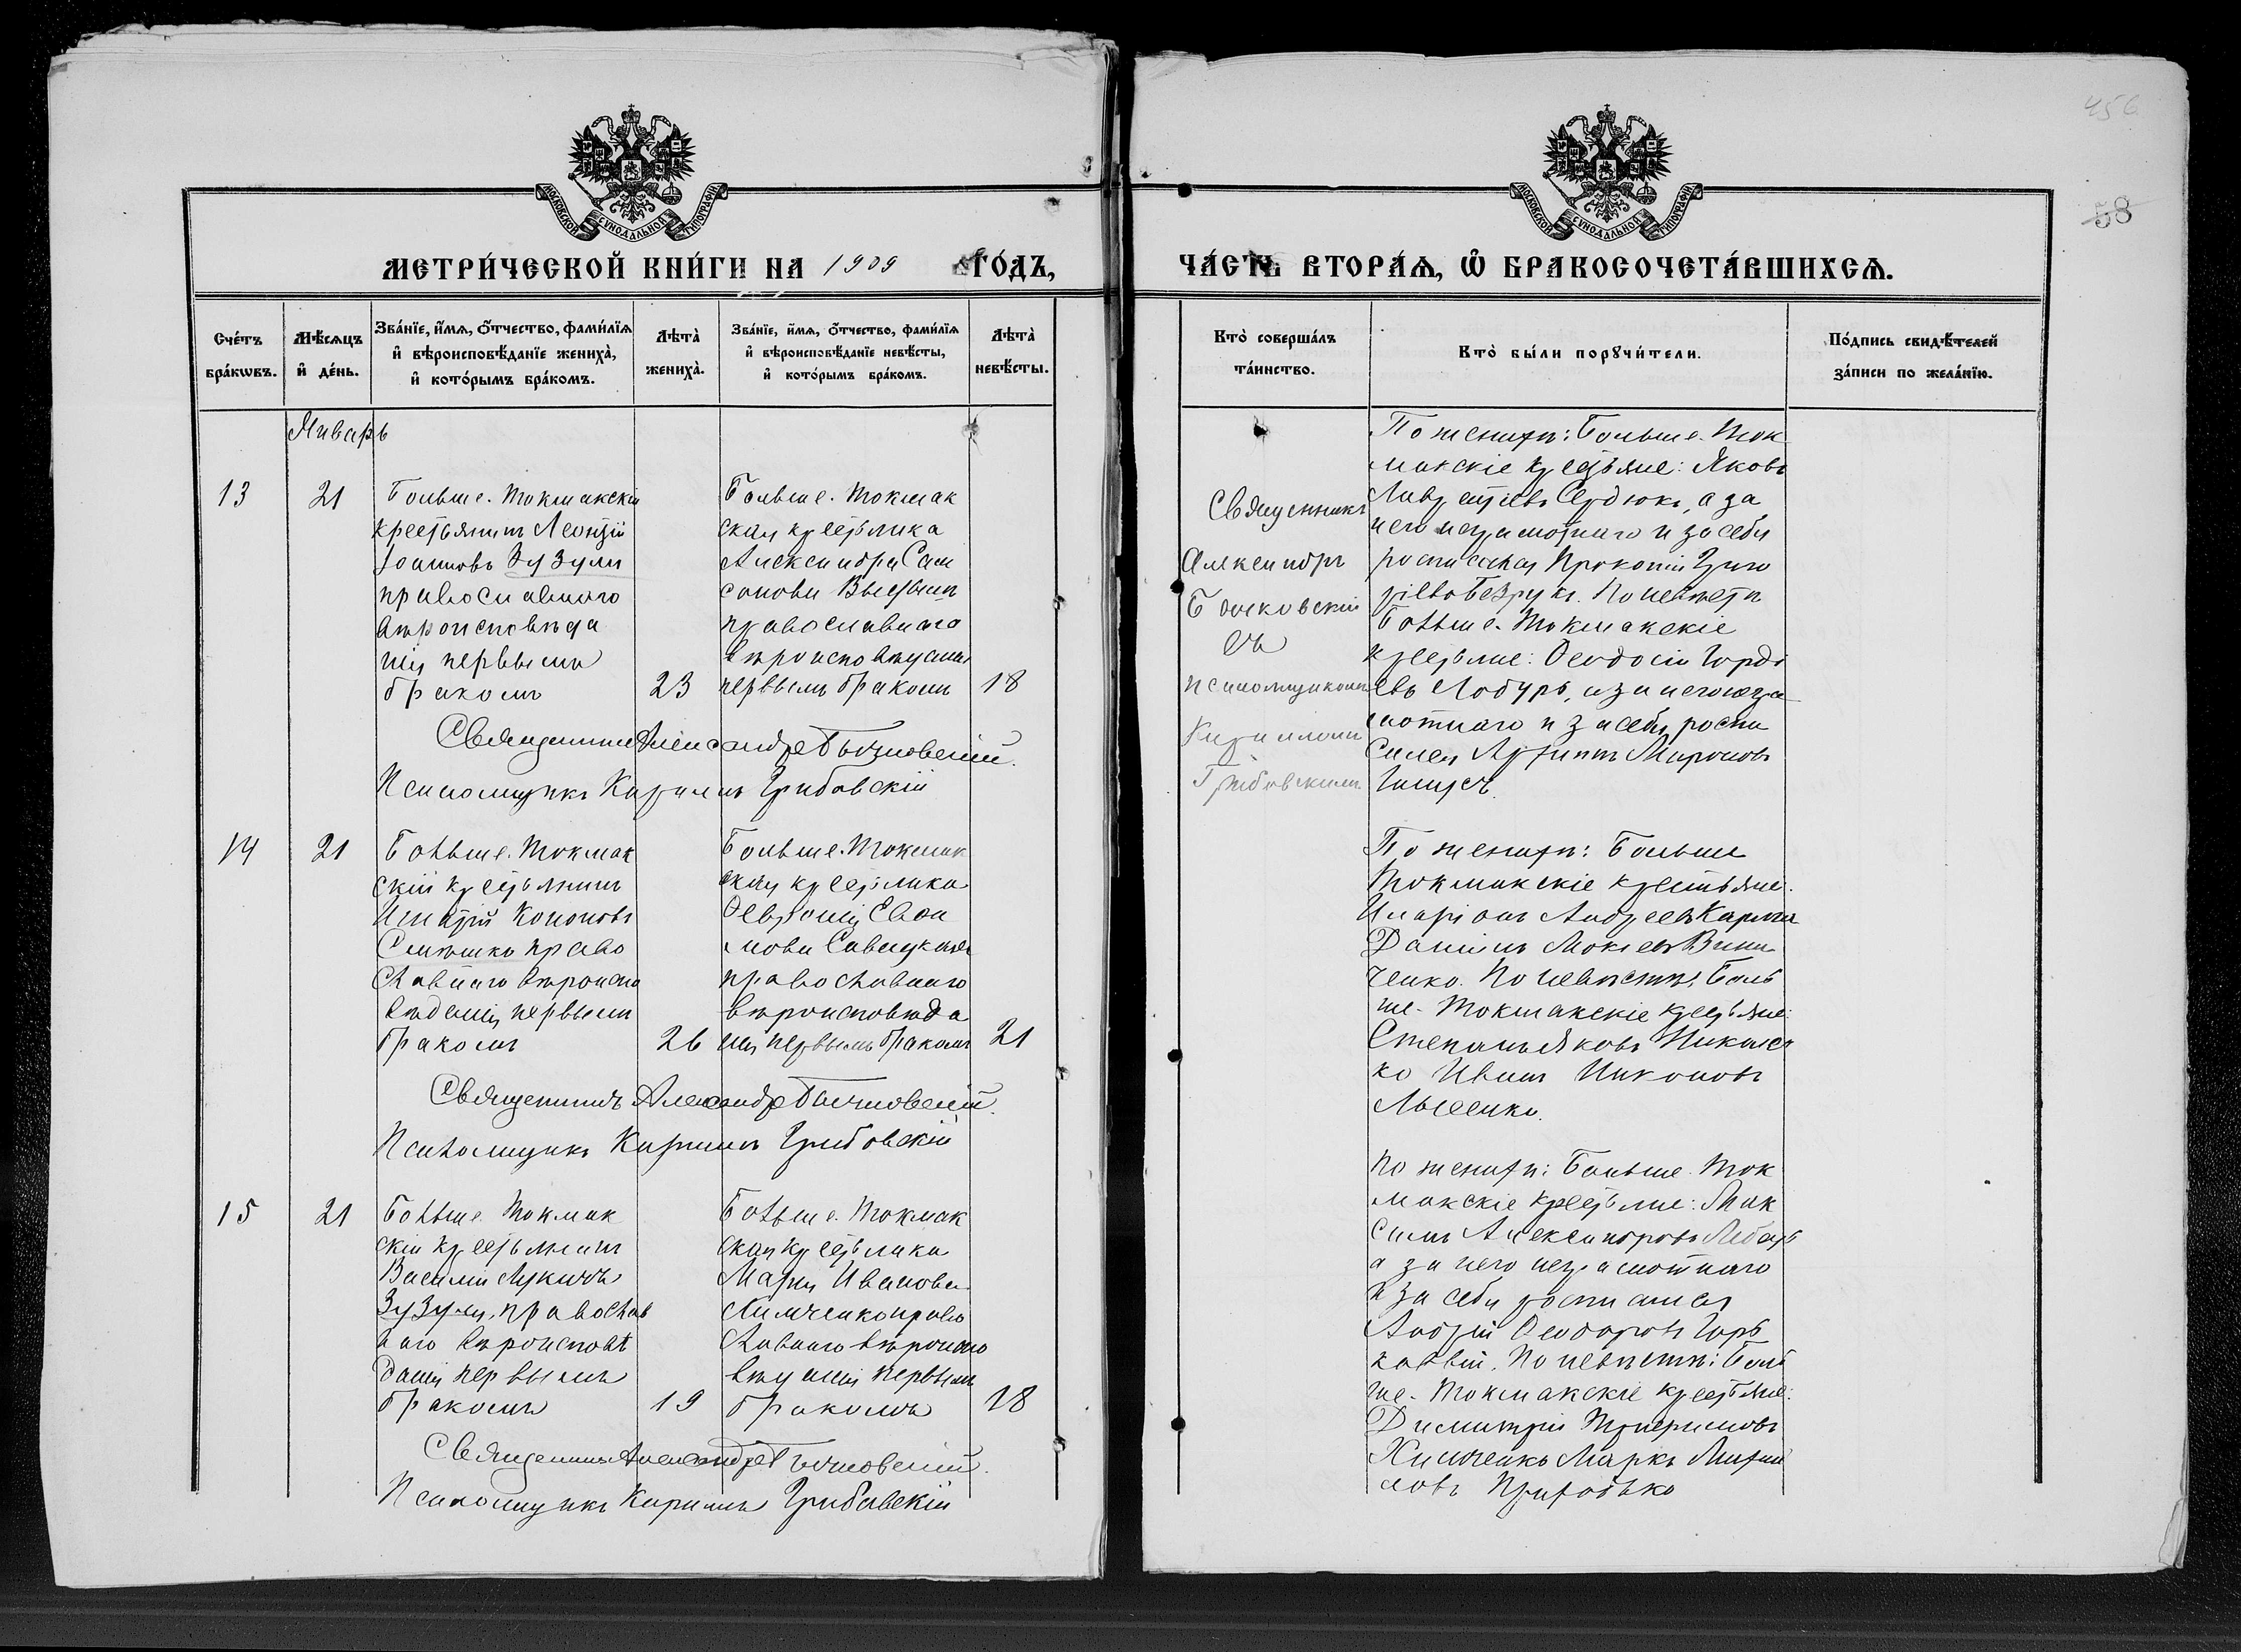 456
58
МОСКОВСКОЙ СѴНОДАЛЬНОЙ ТИПОГРАФІИ
МЕТРИ́ЧЕСКОЙ КНИ́ГИ НА 1909 ГО́ДЪ,
Сче́тъ бра́кѡвъ.
Мѣ́сѧцъ и҆ де́нь.
Зва́нїе, и҆́мѧ, ѻ҆́тчество, фами́лїѧ
и҆ вѣроисповѣ́данїе жениха̀,
и҆ кото́рымъ бра́комъ.
Лѣта̀ жениха̀.
Зва́нїе, и҆́мѧ, ѻ҆́тчество, фами́лїѧ
и҆ вѣроисповѣ́данїе невѣ́сты,
и҆ кото́рымъ бра́комъ.
Лѣта̀ невѣ́сты.
Январь
13
21
Больше-Токмакскій
крестьянинъ Леонтій
Іоанновъ Зузуля
православнаго
вѣроисповѣда
нія первымъ
бракомъ
23
Больше-Токмак
ская крестьянка
Александра Сам
сонова
православнаго
вѣроисповѣданія
первымъ бракомъ
18
Священникъ Александръ Бычковскій.
Псаломщикъ Кириллъ Грибовскій
14
21
Больше-Токмак
скій крестьянинъ
Игнатій Кононовъ
право
славнаго вѣроиспо
вѣданія первымъ
бракомъ
26
Больше-Токмак
ская крестьянка
Февронія Евфи
мова Савицкая
православнаго
вѣроисповѣда
нія первымъ бракомъ
21
Священникъ Александръ Бычковскій.
Псаломщикъ Кириллъ Грибовскій
15
21
Больше-Токмак
скій крестьянинъ
Василій Лукичъ
Зузуля, православ
наго вѣроисповѣ
данія первымъ
бракомъ
19
Больше-Токмак
ская крестьянка
Марія Иванова
Химченко право
славнаго вѣроиспо
вѣданія первымъ
бракомъ
18
Священникъ Александръ Бычковскій.
Псаломщикъ Кириллъ Грибовскій
МОСКОВСКОЙ СѴНОДАЛЬНОЙ ТИПОГРАФІИ
ЧА́СТЬ ВТОРА́Ѧ, Ѡ҆ БРАКОСОЧЕТА́ВШИХСѦ.
Кто̀ соверша́лъ та́инство.
Кто̀ бы́ли порꙋчи́тели.
По́дпись свидѣ́телей за́писи по жела́нїю.
Священникъ
Александръ
Бычковскій
съ
псаломщикомъ
Кирилломъ
Грибовскимъ
По женихѣ: Больше-Ток
макскіе крестьяне: Яковъ
Лаврентіевъ Сердюкъ, а за
него неграмотнаго и за себя
росписался Прокопій Григо
ріевъ Безрукъ. По невѣстѣ
Больше-Токмакскіе
крестьяне: Феодосій Горді
евъ Лобуръ, а за него негра
мотнаго и за себя роспи
сался Архипъ Мироновъ
По женихѣ: Больше
Токмакскіе крестьяне:
Иларіонъ Андреевъ
Даніилъ Мокіевъ Винни
ченко. По невѣстѣ: Боль
ше-Токмакскіе крестьяне:
Стефанъ Яковъ
ко Иванъ Никоновъ
Лысенко.
По женихѣ: Больше-Ток
макскіе крестьяне: Мак
симъ Александровъ
а за него неграмотнаго
и за себя росписался
Андрей Феодоровъ Горь
кавый. По невѣстѣ: Боль
ше-Токмакскіе крестьяне:
Димитрій
Химченко Маркъ Митрофа
новъ Приходько